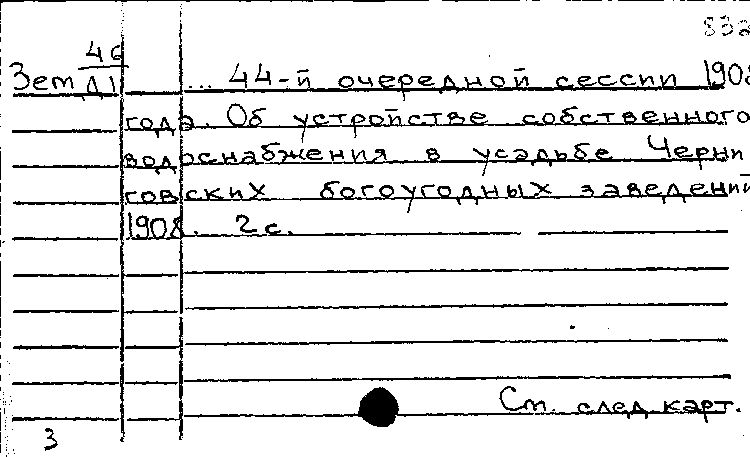 832
46
Зет Д1 ... 44-й очередной сессии 1908
года. Об устройстве собственного
водоснабжения в усадьбе Черни
говских богоугодных заведений
1908. 2 с.
См. след. карт.
3